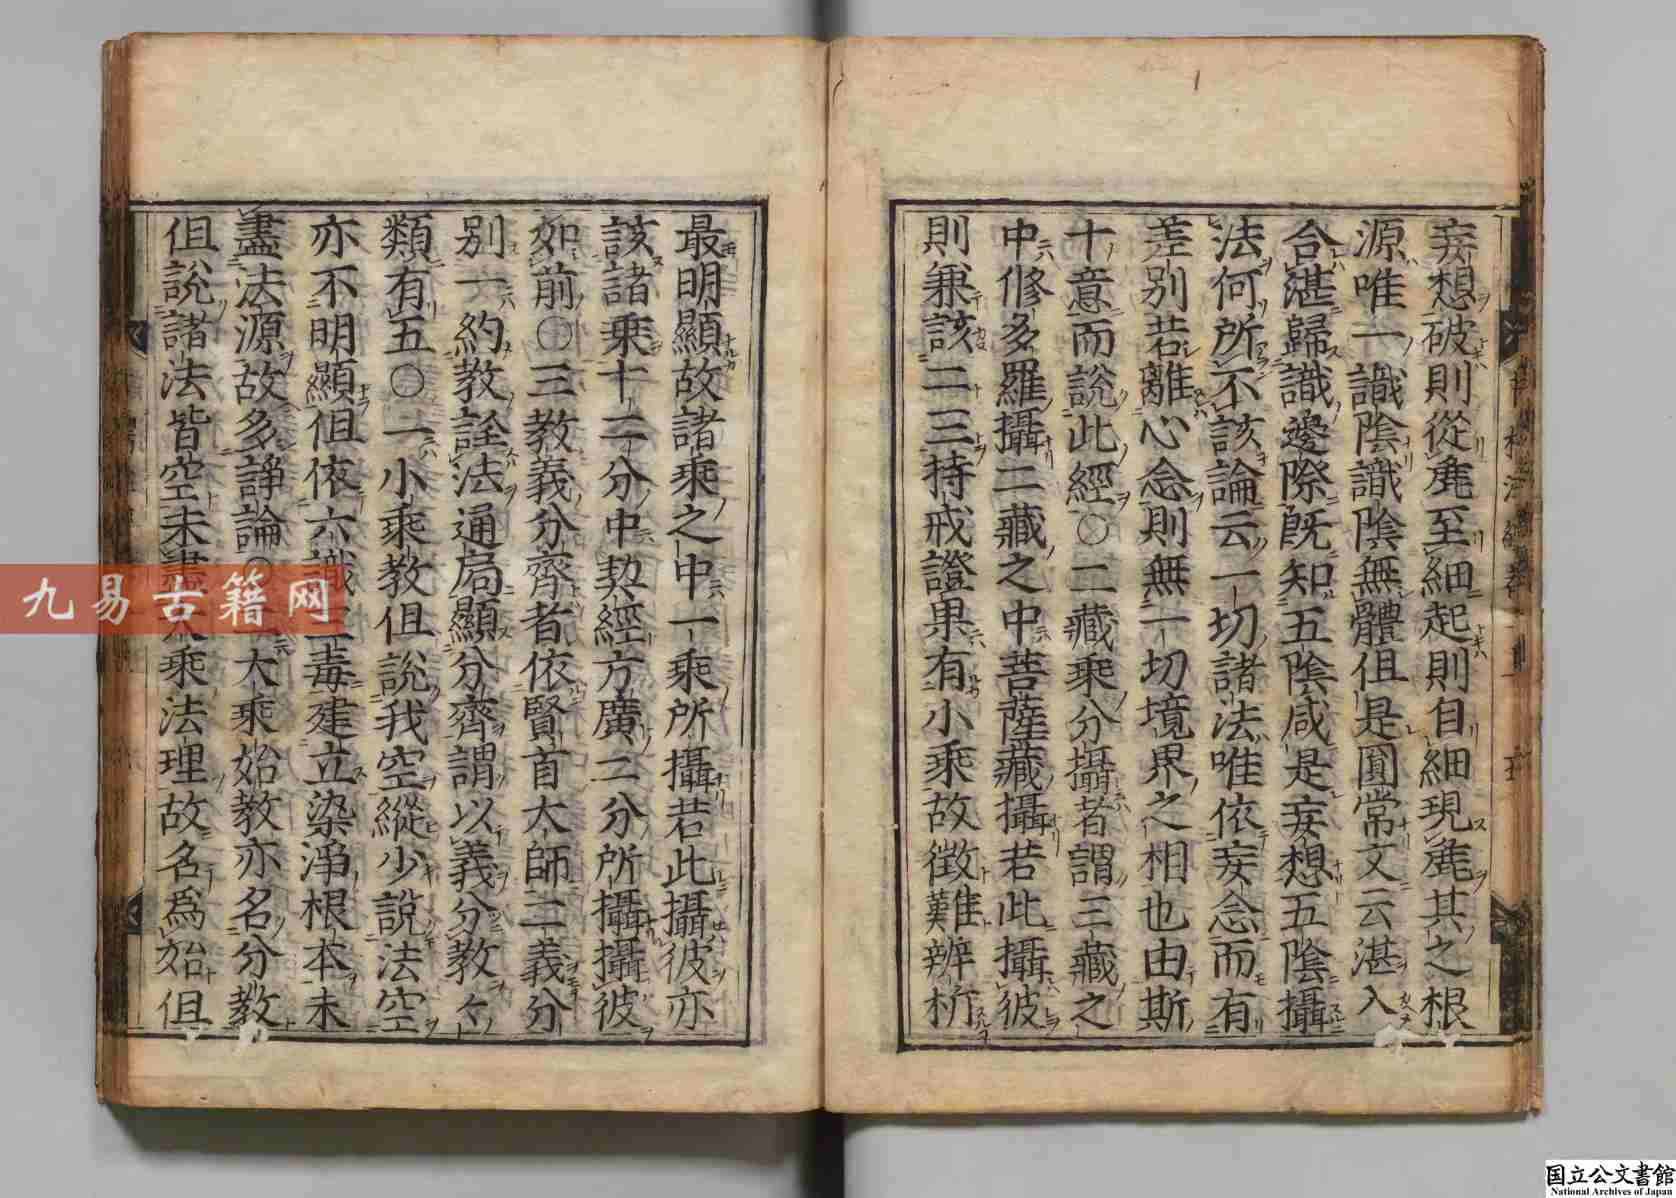 妄想破則從麁至細起則自細現麁其之根
源唯一識陰識陰無體但是圓常文云湛入
合湛歸識邊際既知五陰咸是妄想五陰攝
法何所不該論云一切諸法唯依妄念而有
差別若離心念則無一切境界之相也由斯
十意而說此經〇二藏乘分攝者謂三藏之
中修多羅攝二藏之中菩薩藏攝若此攝彼
則兼該二三持戒證果有小乘故徵難辨析
最明顯故諸乘之中一乘所攝若此攝彼亦
該諸乘十二分中契經方廣二分所攝攝彼
如前〇三教義分齊者依賢首大師二義分
別一約教詮法通局顯分齊謂以義分教々
類有五〇一小乘教但說我空縱少說法空
亦不明顯但依六識三毒建立染淨根本未
盡法源故多諍論〇二大乘始教亦名分教
但說諸法皆空未盡大乘法理故名爲始但
九易古籍网
国立公文書館
National Archives of Japan